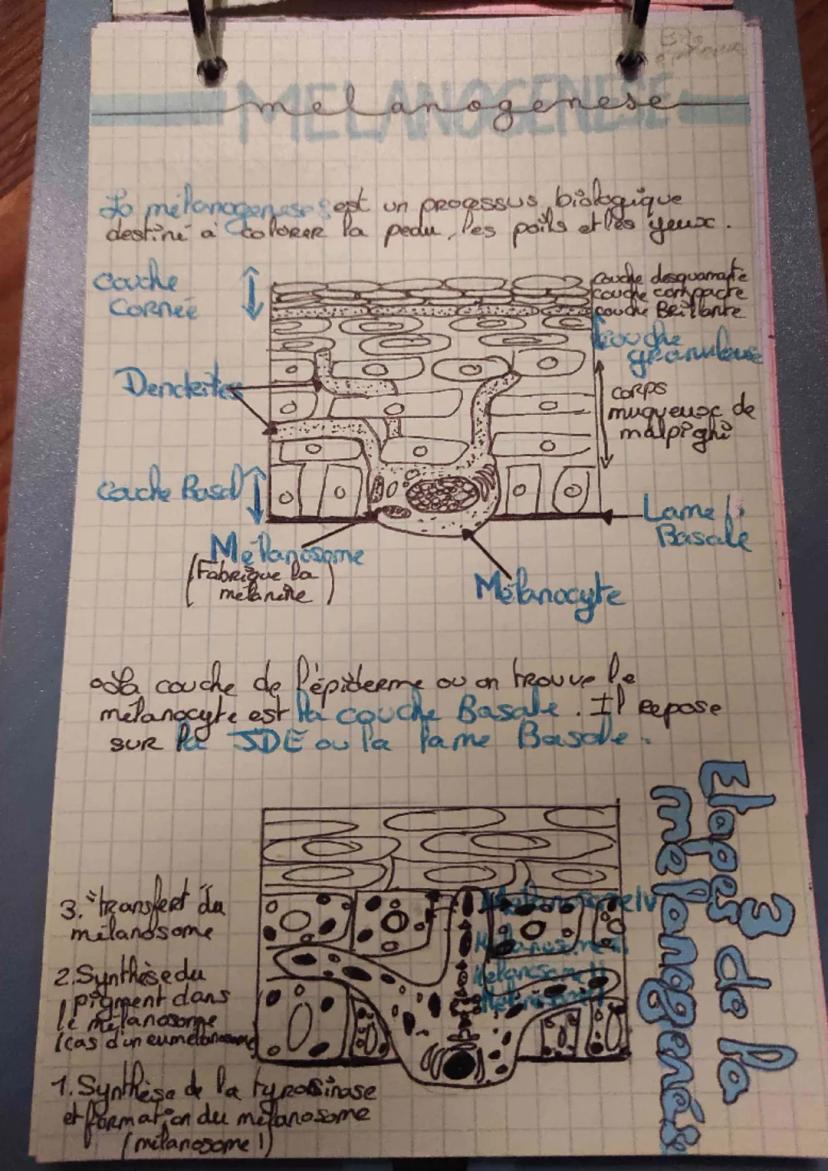 MELANOGENESE
melanogenese
La mélanogenese est un processus biologique
destiné à colorer la peau, les poils et les yeux.
couche
cornée
couche desquamante
couche compacte
couche Brillante
couche
granuleuse
Dendrites
corps
muqueux de
malpighi
couche Basal
Lame
Basale
Mélanosome
(Fabrique la
mélanine)
Mélanocyte
La couche de l'épiderme ou on trouve le
mélanocyte est la couche Basale. Il repose
sur la JDE ou la lame Basale.
3 Etapes de la
melanogenése
3. transfert du
mélanosome
2. Synthèse du
pigment dans
le mélanosome
(cas d'un eumélanosome)
1. Synthèse de la tyrosinase
et formation du mélanosome
(mélanosome I)
Melanosome IV
Melanosome III
Melanosome II
Melanosome I